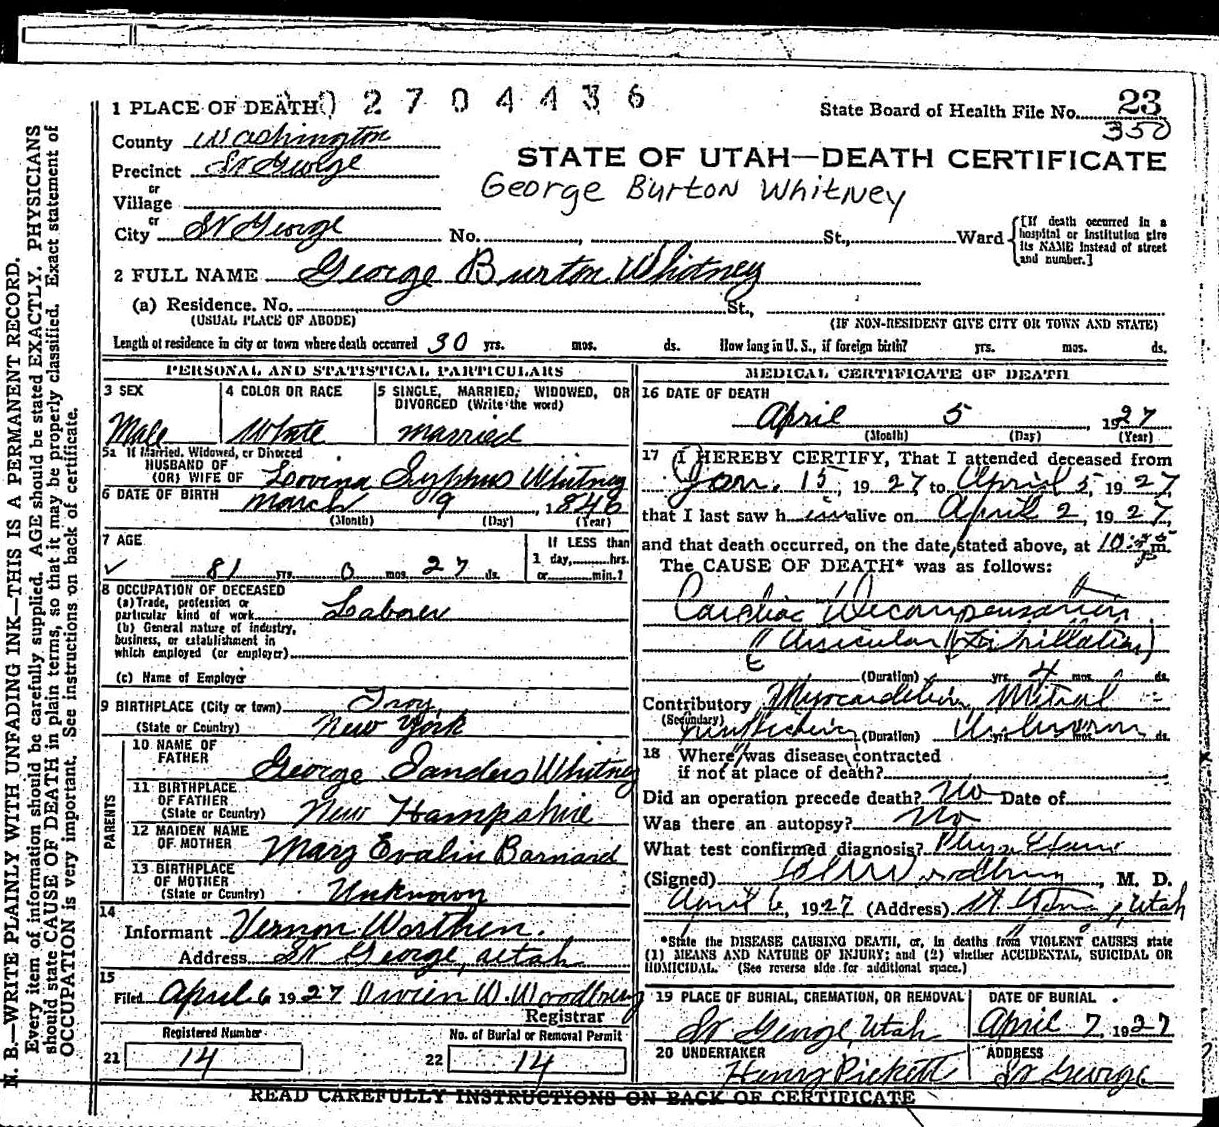 N. B.—WRITE PLAINLY WITH UNFADING INK—THIS IS A PERMANENT RECORD.
Every item of information should be carefully supplied. AGE should be stated EXACTLY. PHYSICIANS
should state CAUSE OF DEATH in plain terms, so that it may be properly classified. Exact statement of
OCCUPATION is very important. See instructions on back of certificate.
1 PLACE OF DEATH 02704436
State Board of Health File No. 23
350
County Washington
Precinct St George
or
Village
or
City St George No. , St., Ward
[If death occurred in a hospital or institution give its NAME instead of street and number.]
STATE OF UTAH—DEATH CERTIFICATE
George Burton Whitney
2 FULL NAME George Burton Whitney
(a) Residence. No. St.,
(USUAL PLACE OF ABODE) (IF NON-RESIDENT GIVE CITY OR TOWN AND STATE)
Length of residence in city or town where death occurred 30 yrs. mos. ds. How long in U. S., if foreign birth? yrs. mos. ds.
PERSONAL AND STATISTICAL PARTICULARS
3 SEX
Male
4 COLOR OR RACE
White
5 SINGLE, MARRIED, WIDOWED, OR
DIVORCED (Write the word)
married
5a If Married, Widowed, or Divorced
HUSBAND OF
(OR) WIFE OF Lovina Syphus Whitney
6 DATE OF BIRTH March 9, 1846
(Month) (Day) (Year)
7 AGE
81 yrs. 0 mos. 27 ds.
If LESS than
1 day, hrs.
or min.?
8 OCCUPATION OF DECEASED
(a) Trade, profession or
particular kind of work Laborer
(b) General nature of industry,
business, or establishment in
which employed (or employer)
(c) Name of Employer
9 BIRTHPLACE (City or town) Troy,
(State or Country) New York
PARENTS
10 NAME OF
FATHER George Sanders Whitney
11 BIRTHPLACE
OF FATHER
(State or Country) New Hampshire
12 MAIDEN NAME
OF MOTHER Mary Evalin Barnard
13 BIRTHPLACE
OF MOTHER
(State or Country) Unknown
14
Informant Vernon Worthen.
Address St George, Utah
15
Filed April 6 1927 Vivien W. Woodbury
Registrar
Registered Number
21 14
No. of Burial or Removal Permit
22 14
MEDICAL CERTIFICATE OF DEATH
16 DATE OF DEATH
April 5, 1927
(Month) (Day) (Year)
17 I HEREBY CERTIFY, That I attended deceased from
Jan. 15, 1927 to April 5, 1927
that I last saw him alive on April 2, 1927
and that death occurred, on the date stated above, at 10: m.
The CAUSE OF DEATH* was as follows:
Cardiac Decompensation
(Auricular Fibrillation)
(Duration) yrs. 4 mos. ds.
Contributory Mitral
(Secondary) (Duration) Unknown yrs. mos. ds.
18 Where was disease contracted
if not at place of death?
Did an operation precede death? No Date of
Was there an autopsy? No
What test confirmed diagnosis? Phys. Exam
(Signed) Woodbury, M. D.
April 6, 1927 (Address) St. George, Utah
*State the DISEASE CAUSING DEATH, or, in deaths from VIOLENT CAUSES state
(1) MEANS AND NATURE OF INJURY; and (2) whether ACCIDENTAL, SUICIDAL OR
HOMICIDAL. (See reverse side for additional space.)
19 PLACE OF BURIAL, CREMATION, OR REMOVAL
St George, Utah
DATE OF BURIAL
April 7, 1927
20 UNDERTAKER
Henry Pickett
ADDRESS
St George
READ CAREFULLY INSTRUCTIONS ON BACK OF CERTIFICATE